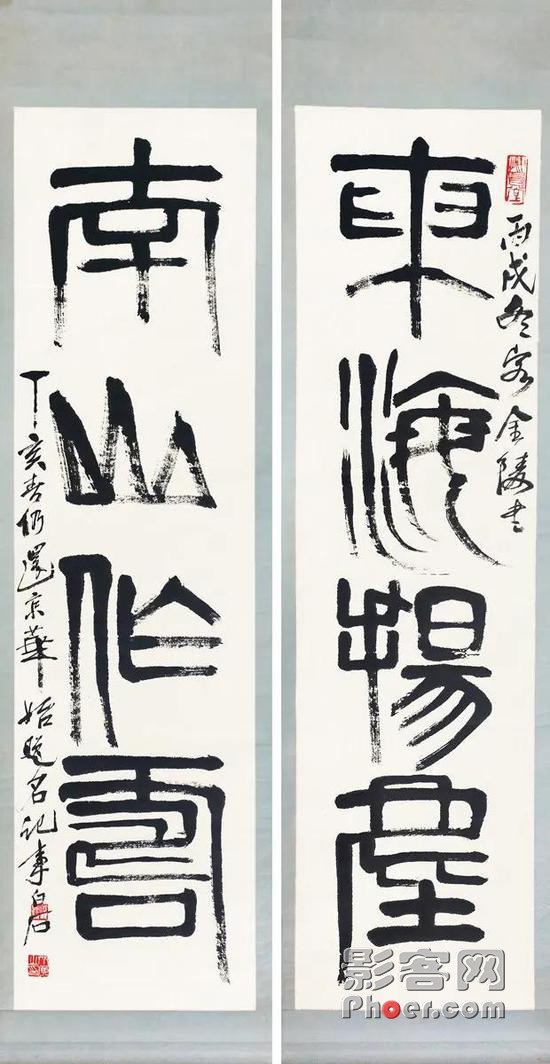 東海揚塵
丙戌冬客金陵書
南山作壽
丁亥春仍還京華始題名記事白石
影客网
Phoer.com